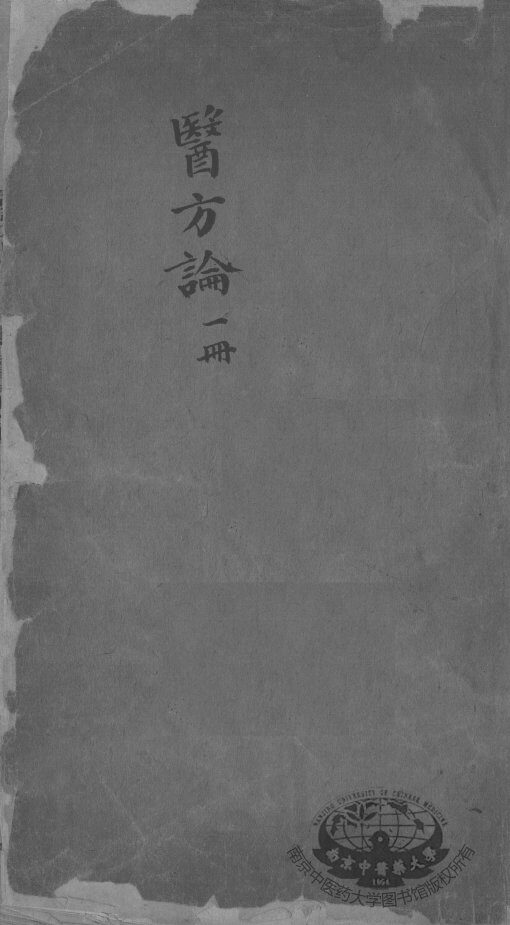 醫方論
一冊
NANJING UNIVERSITY OF CHINESE MEDICINE
南京中醫藥大學
1954
南京中医药大学图书馆版权所有